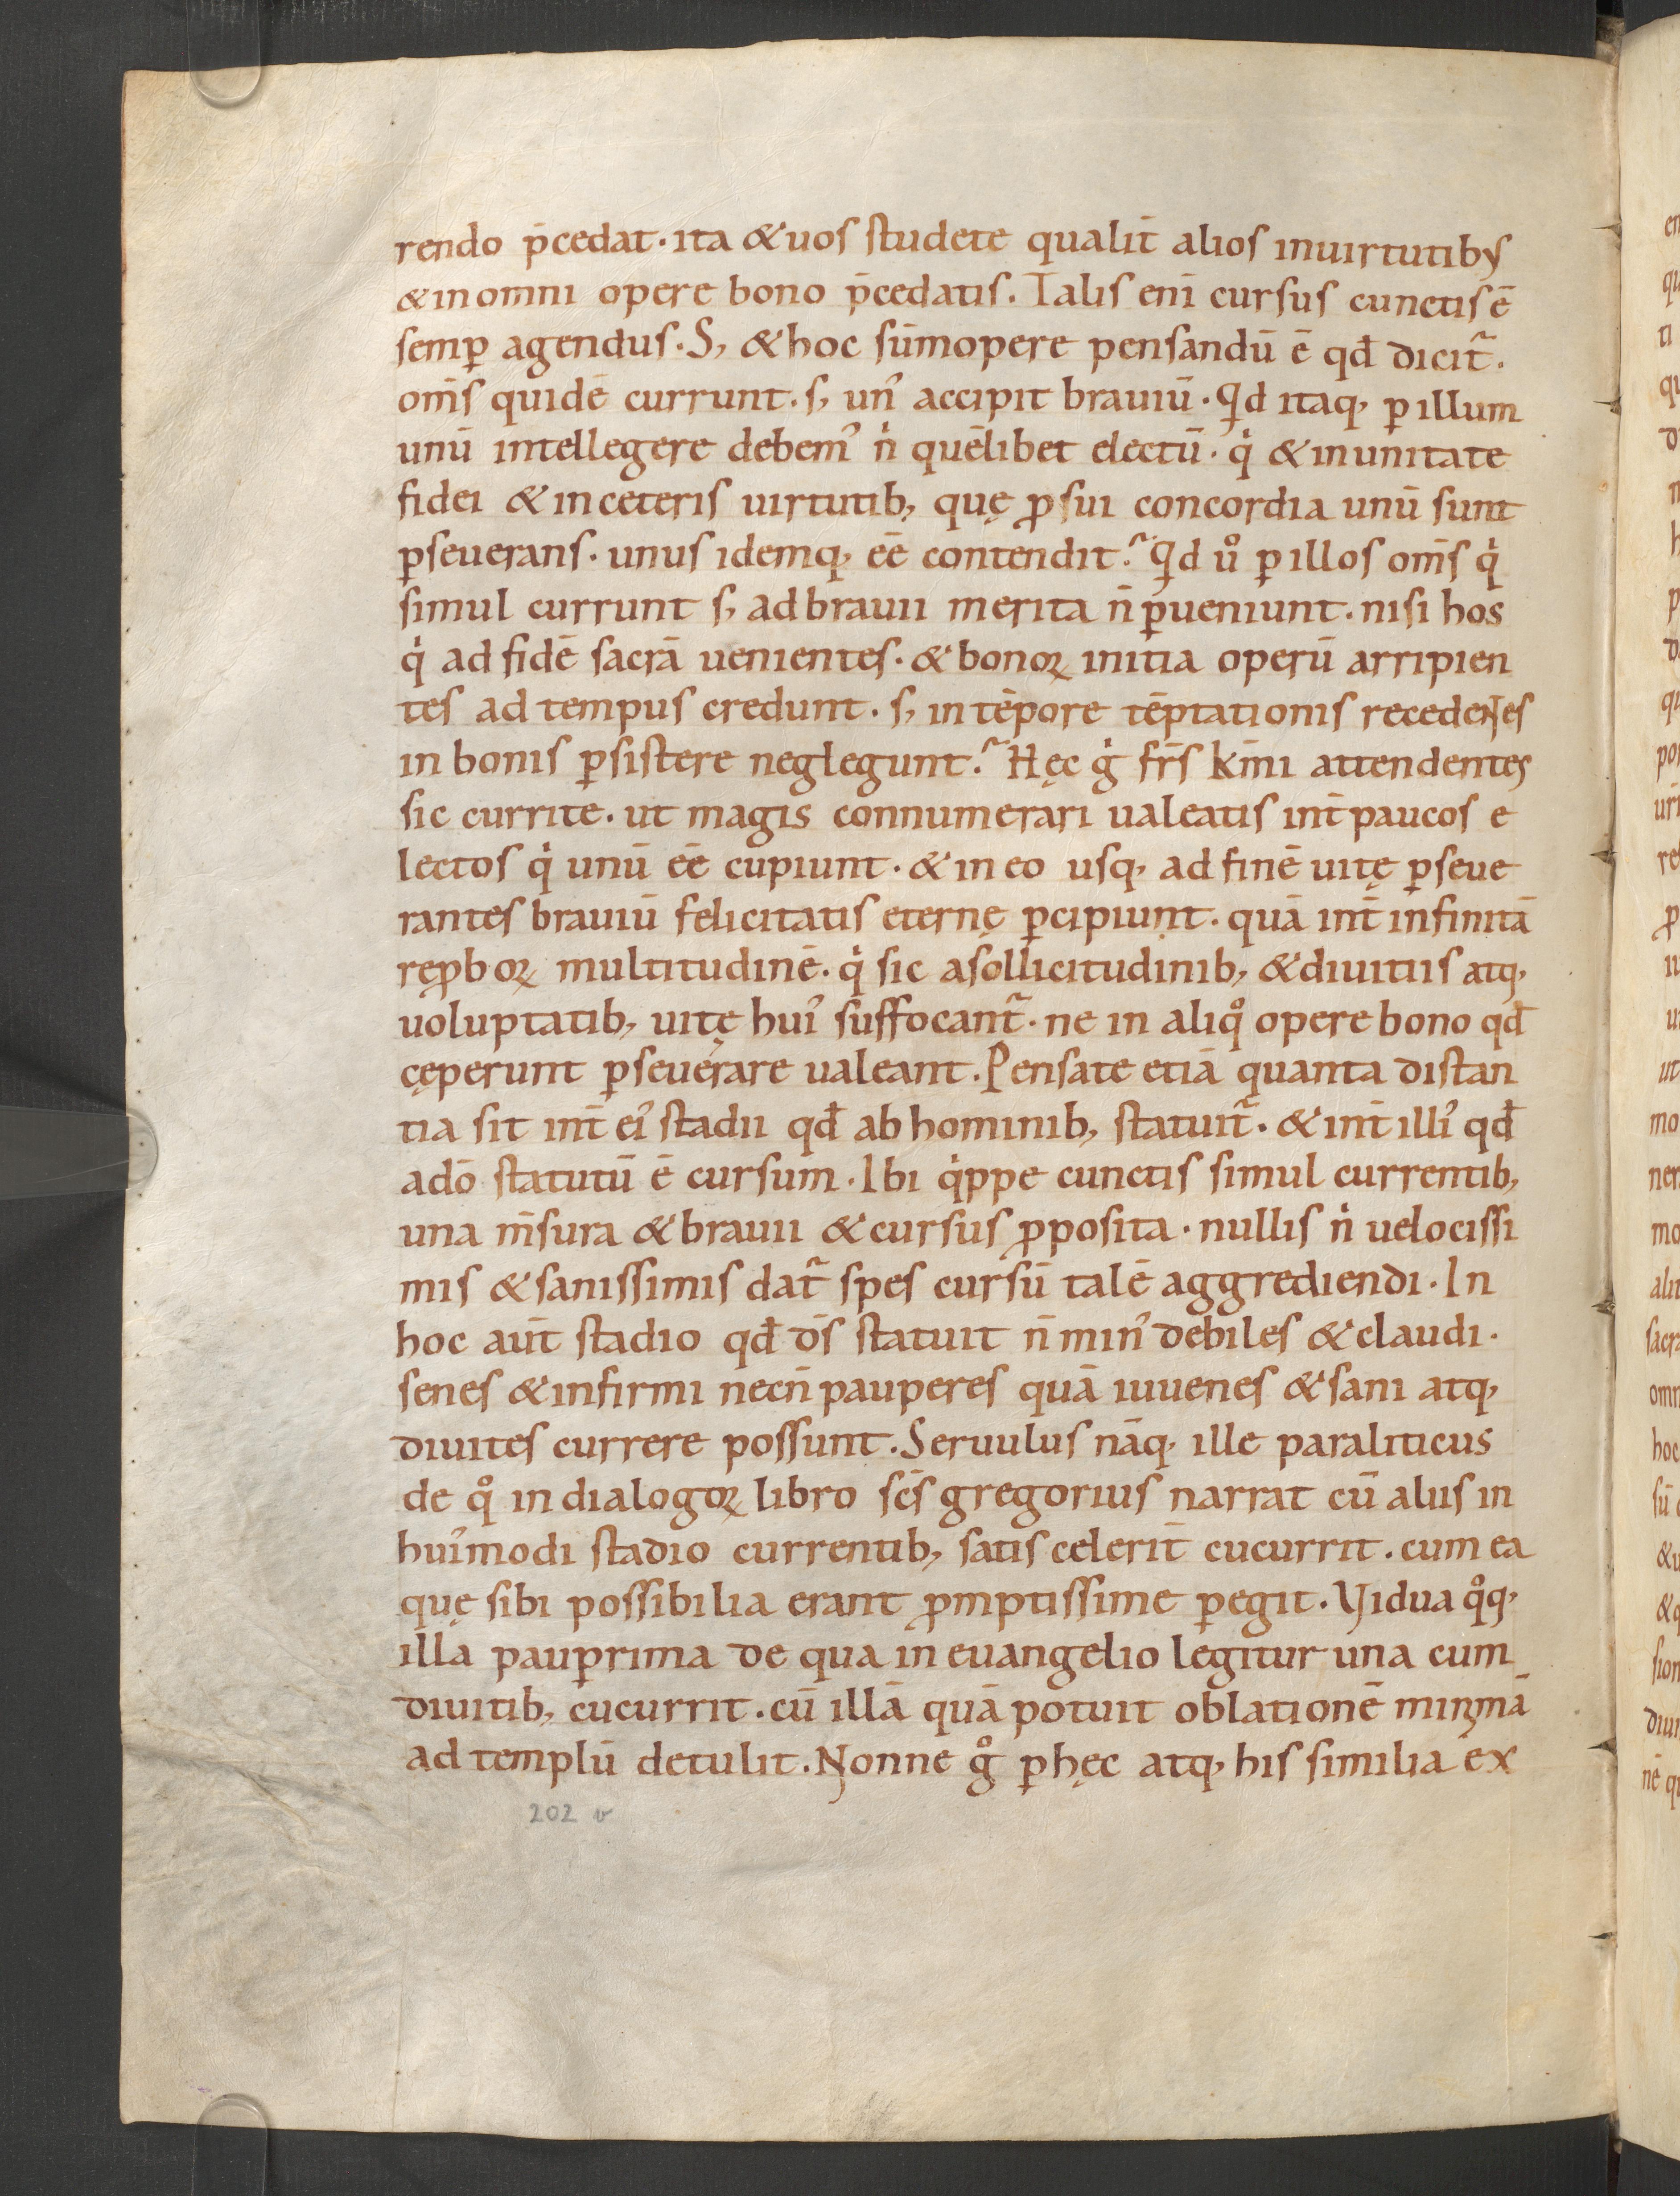 rendo p̄cedat. ita & uos studete qualit̄ alios in uirtutibus
& in omni opere bono p̄cedatis. Talis eni̅ cursus cunctis ē
semꝑ agendus. S; & hoc sūmopere pensandū ē qđ dicit᷑.
om̄s quidē currunt. s; unꝰ accipit brauiū. Qd itaq; ꝑ illum
unū intellegere debemꝰ nͥ quēlibet electū. qͥ & in unitate
fidei & in ceteris uirtutib; quę ꝓ sui concordia unū sunt
ꝑseuerans. unus idemq; eē contendit? Qd uͦ ꝑ illos om̄s qͥ
simul currunt s; ad brauii merita n̄ ꝑueniunt. nisi hos
qͥ ad fidē sacrā uenientes. & bonoꝝ initia operū arripien
tes ad tempus credunt. s; in tēpore tēptationis recedentes
in bonis ꝑsistere neglegunt? Hęc gͥ fr̄s km̄i attendentes
sic currite. ut magis connumerari ualeatis int̄ paucos e
lectos qͥ unū eē cupiunt. & in eo usq; ad finē uitę ꝑseue
rantes brauiū felicitatis eternę ꝑcipiunt. quā int̄ infinitā
reꝓboꝝ multitudinē. qͥ sic a sollicitudinib; & diuitiis atq;
uoluptatib; uitę huiꝰ suffocant᷑. ne in aliqͦ opere bono qđ
cęperunt ꝑseuerare ualeant. Pensate etiā quanta distan
tia sit int̄ eiꝰ stadii qđ ab hominib; statuit᷑. & int̄ illiꝰ qđ
a dō statutū ē cursum. Ibi qͥppe cunctis simul currentib;
una m̄sura & brauii & cursus ꝓposita. nullis nͥ uelocissi
mis & sanissimis dat᷑ spes cursū talē aggrediendi. In
hoc aut̄ stadio qđ ds̄ statuit n̄ minꝰ debiles & claudi.
senes & infirmi necn̄ pauperes quā iuuenes & sani atq;
diuites currere possunt. Seruulus nāq; ille paraliticus
de qͦ in dialogoꝝ libro scs̄ gregorius narrat cū aliis in
huiꝰmodi stadio currentib; satis celerit̄ cucurrit. cum ea
quę sibi possibilia erant ꝓmptissime ꝑegit. Vidua qͦq;
illa pauꝑrima de qua in euangelio legitur una cum
diuitib; cucurrit. cū illā quā potuit oblationē minimā
ad templū detulit. Nonne gͦ ꝑ hęc atq; his similia ex
202 v